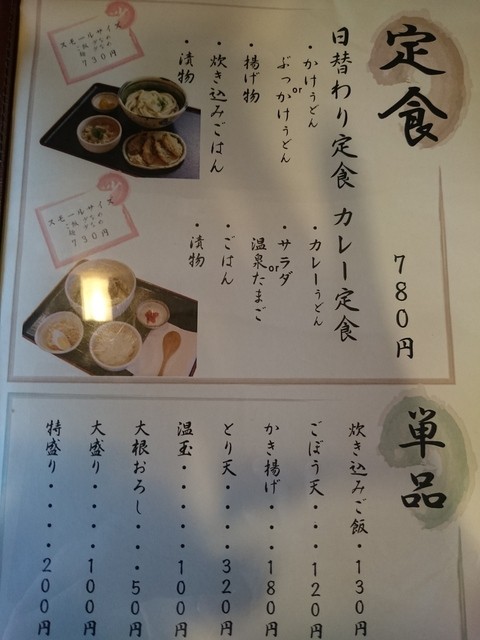 定食
780円
日替わり定食 カレー定食
・かけうどん
or
ぶっかけうどん
・揚げ物
・炊き込みごはん
・漬物
・カレーうどん
・サラダ
or
温泉たまご
・ごはん
・漬物
スモールサイズ
730円
スモールサイズ
730円
単品
炊き込みご飯・130円
ごぼう天・・・120円
かき揚げ・・・180円
とり天・・・・320円
温玉・・・・・100円
大根おろし・・・50円
大盛り・・・・100円
特盛り・・・・200円